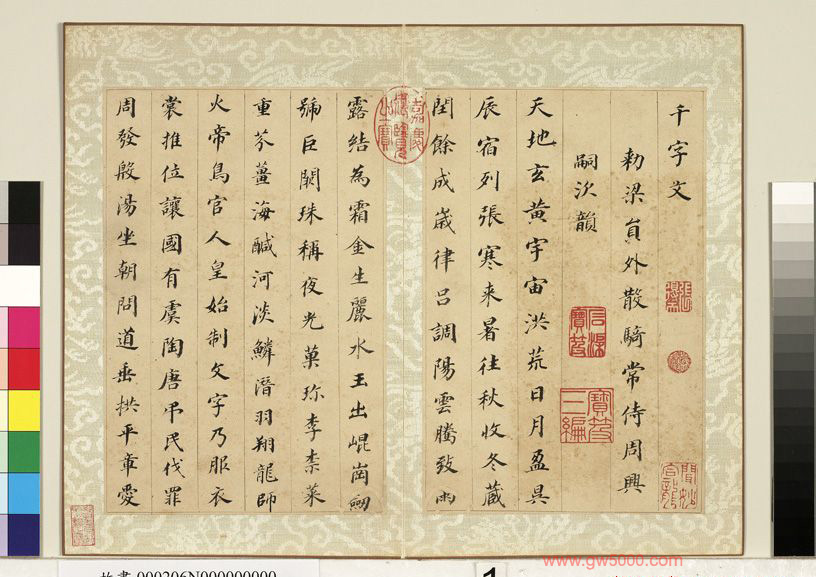 千字文
勑梁員外散騎常侍周興
嗣次韻
天地玄黃宇宙洪荒日月盈昃
辰宿列張寒来暑往秋收冬蔵
閏餘成歲律吕調陽雲騰致雨
露結為霜金生麗水玉出崐崗劒
號巨闕珠稱夜光菓珍李柰菜
重芥薑海鹹河淡鱗潛羽翔龍師
火帝鳥官人皇始制文字乃服衣
裳推位讓國有虞陶唐弔民伐罪
周發殷湯坐朝問道垂拱平章愛
嘉慶御覽之寶
石渠寶笈
寶笈三編
www.gw5000.com